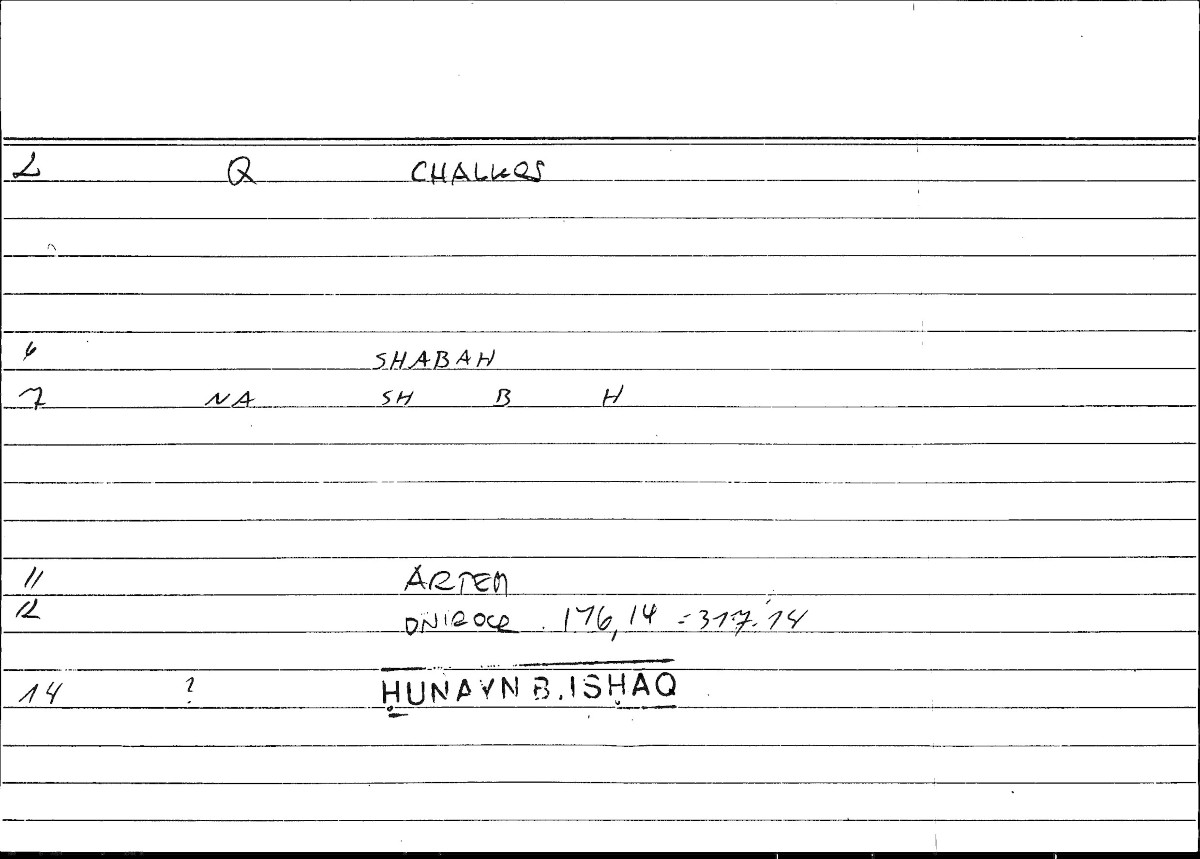 2 Q CHALKOS
6 SHABAH
7 NA SH B H
11 ARTEM
12 ONIROCR. 176,14 = 317.14
14 ? ḤUNAYN B. ISḤAQ